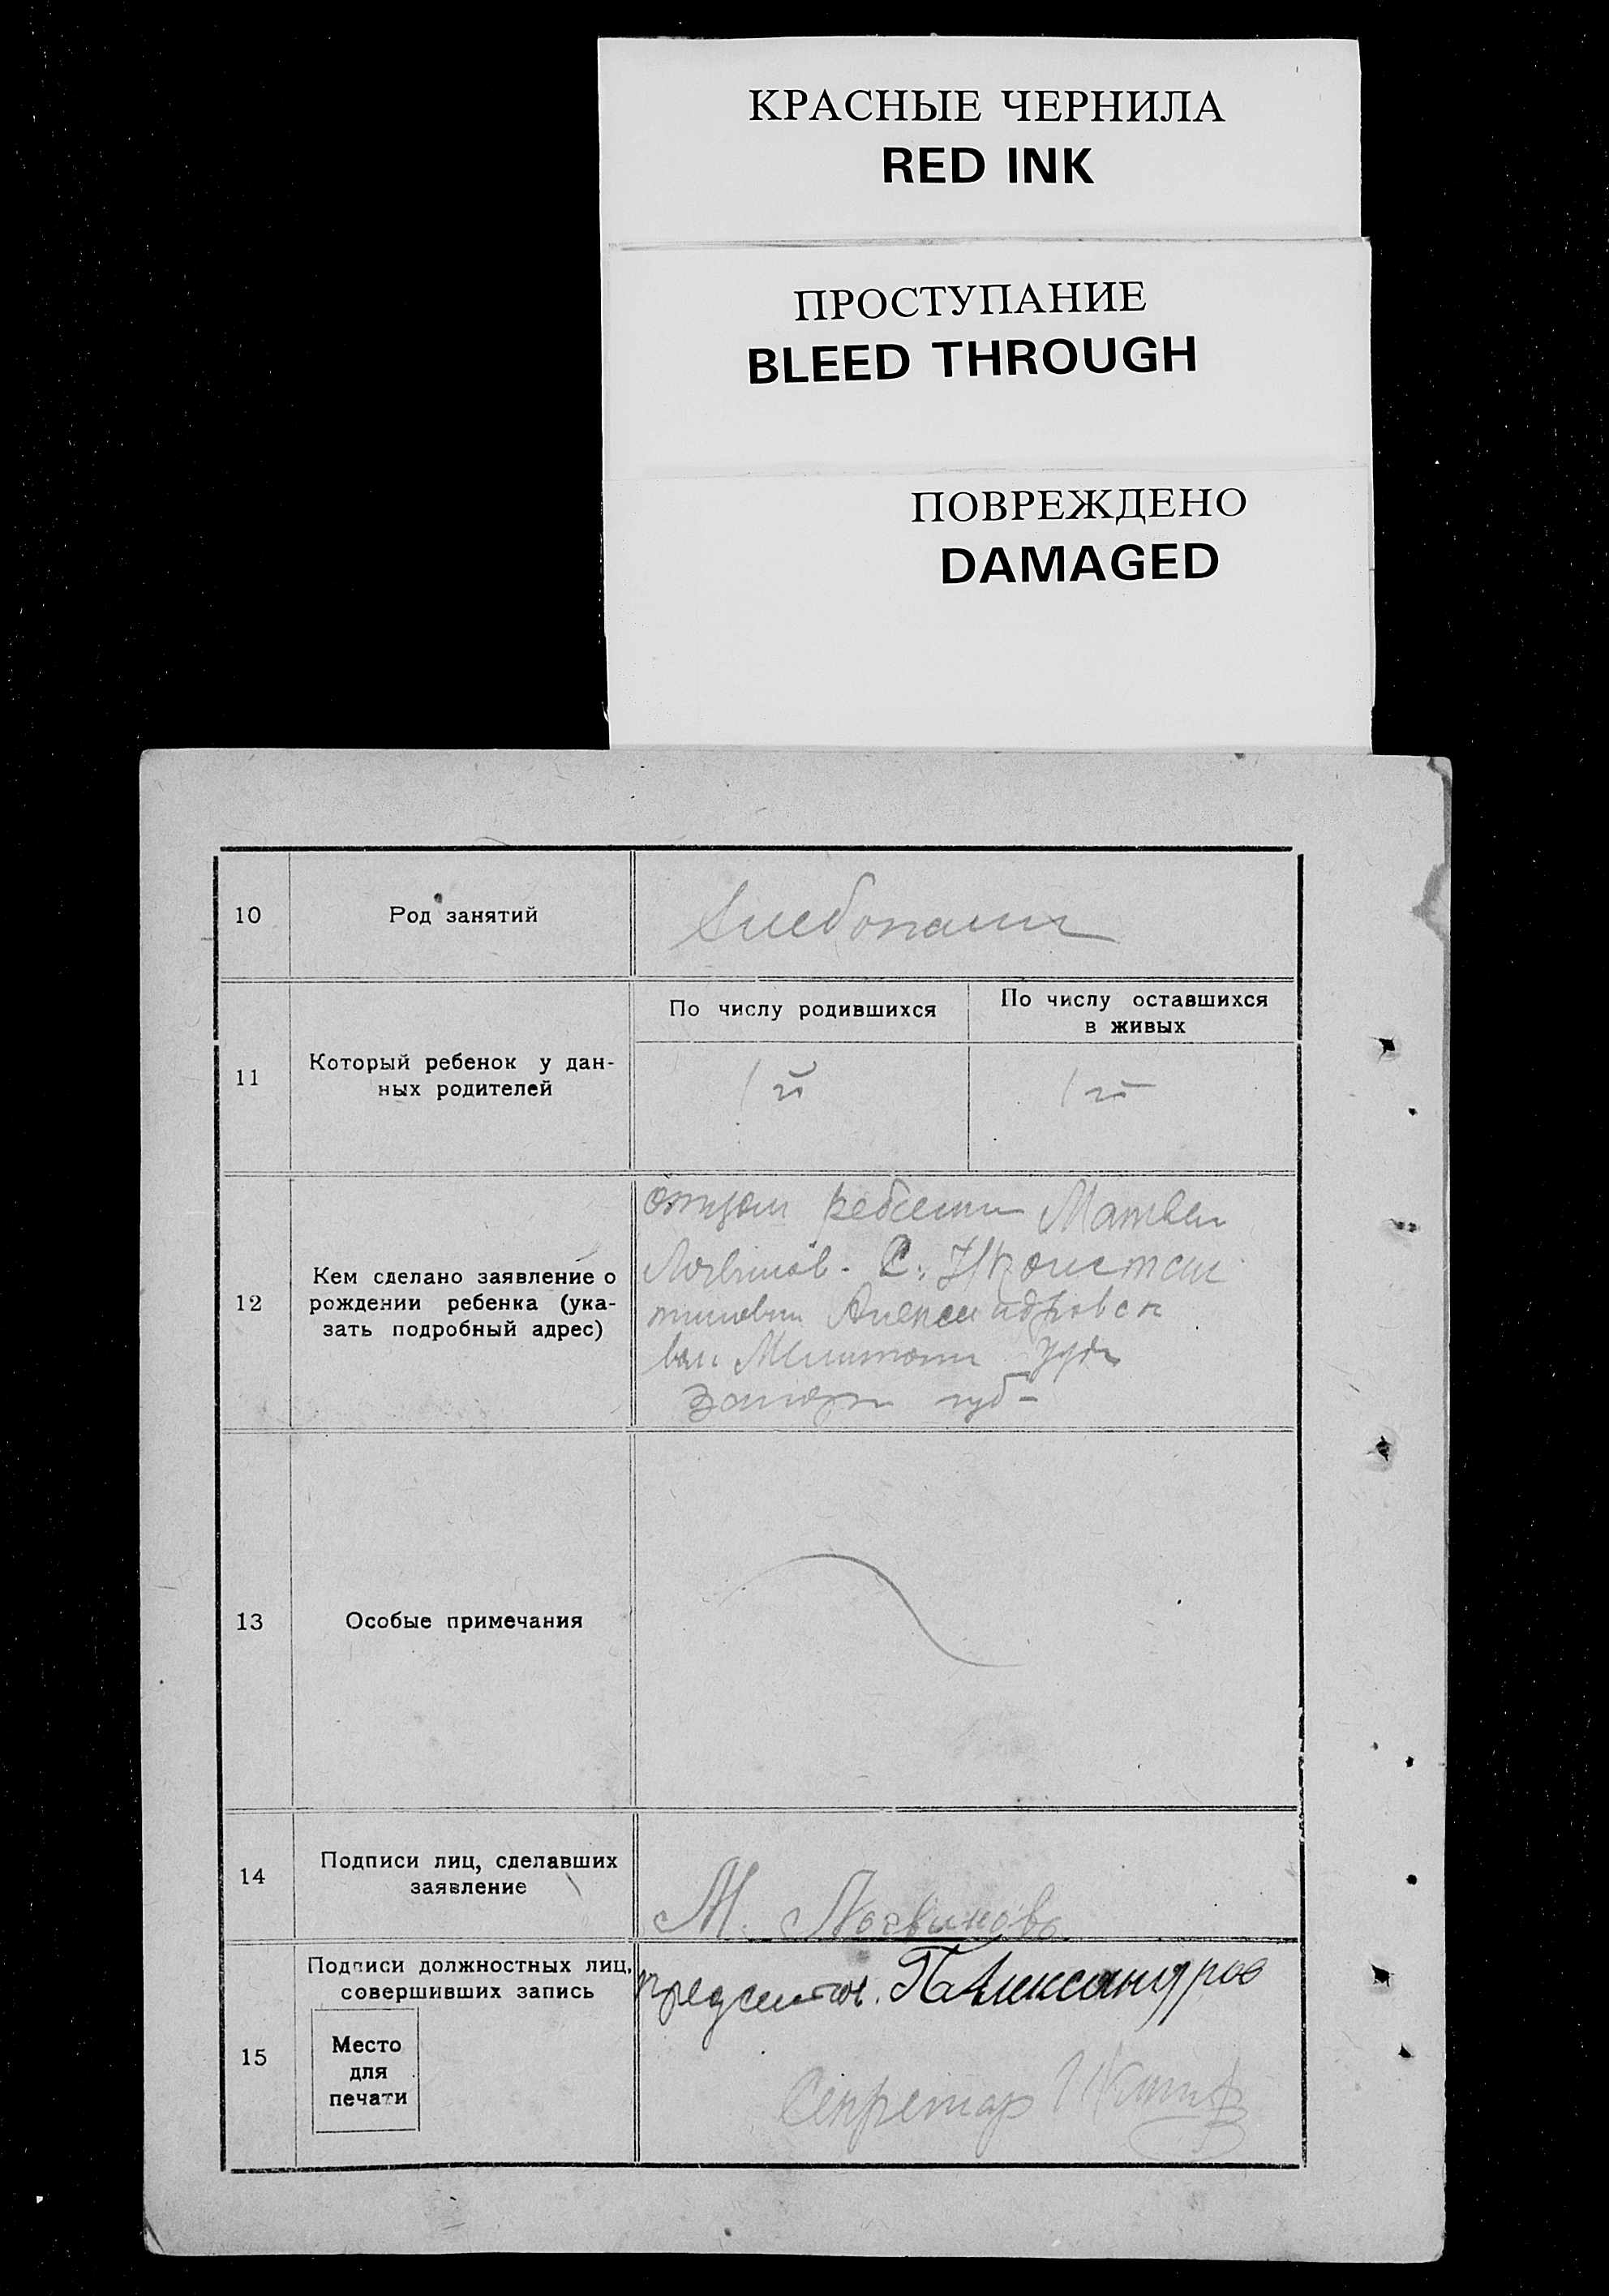 КРАСНЫЕ ЧЕРНИЛА
RED INK
ПРОСТУПАНИЕ
BLEED THROUGH
ПОВРЕЖДЕНО
DAMAGED
10
Род занятий
Хлебопаш
11
Который ребенок у дан-
ных родителей
По числу родившихся
По числу оставшихся
в живых
1й
1й
12
Кем сделано заявление о
рождении ребенка (ука-
зать подробный адрес)
отцом Матвей
Логвинов. С. Констан
тиновки Александровск
вол Мелитоп уезд
губ-
13
Особые примечания
14
Подписи лиц, сделавших
заявление
М. Логвиновъ
15
Подписи должностных лиц,
совершивших запись
Место
для
печати
Александров
Секретар